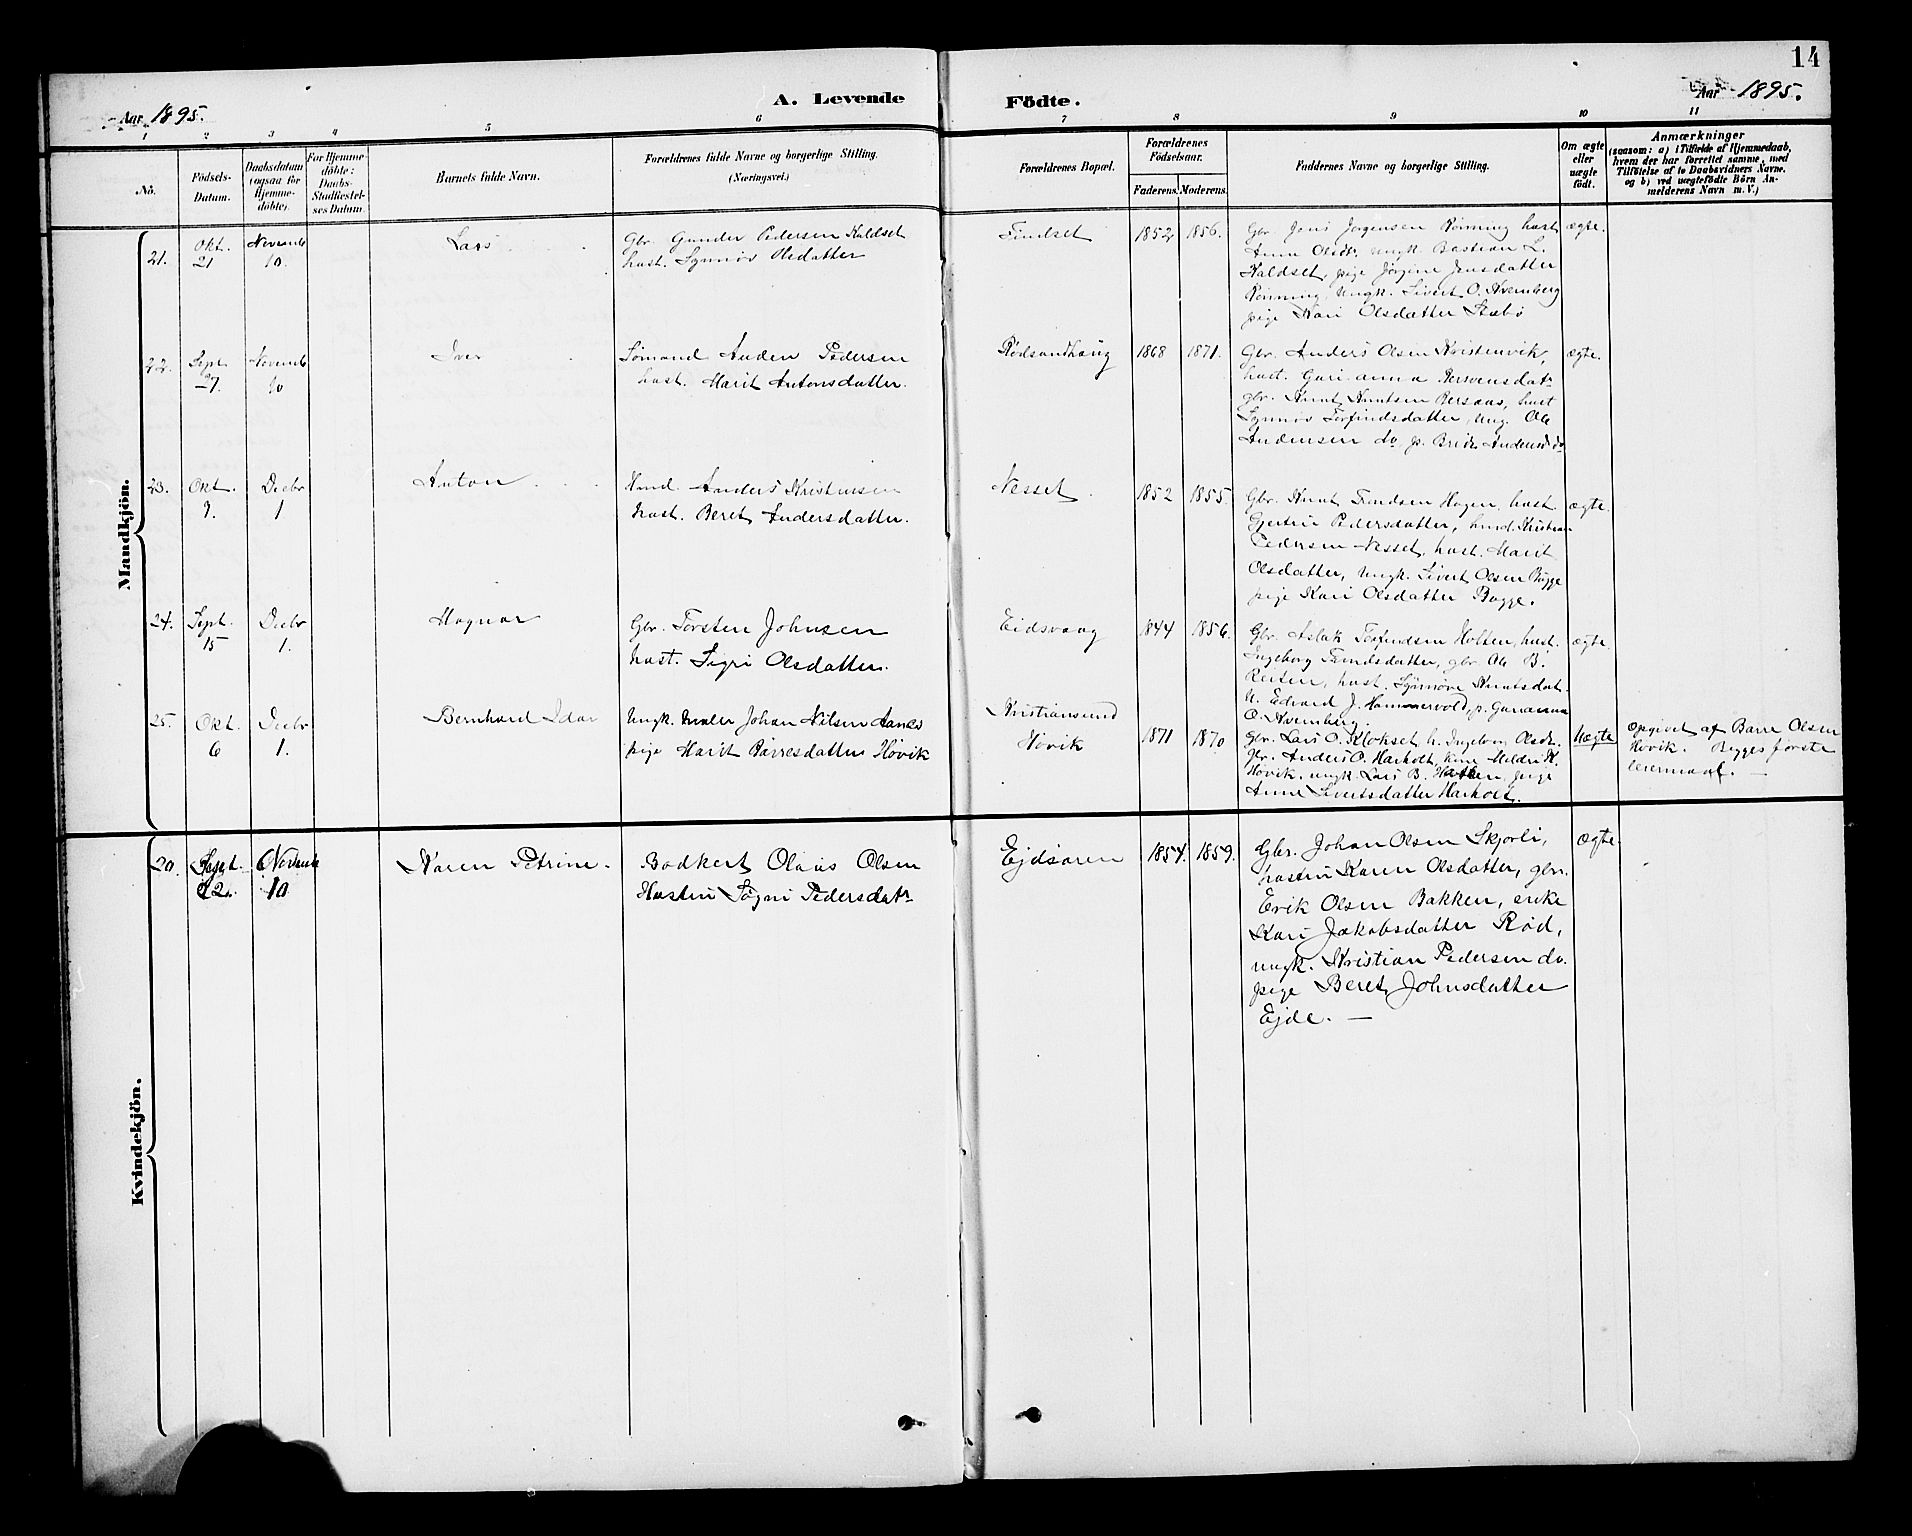 14
Aar 1895.
A. Levende Födte.
Aar 1895.
1 2 3 4 5 6 7 8 9 10 11
No.
Födsels-
Datum.
Daabsdatum
(ogsaa for
Hjemme-
döbte).
For Hjemme-
döbte:
Daabs-
Stadfæstel-
ses Datum.
Barnets fulde Navn.
Forældrenes fulde Navne og borgerlige Stilling.
(Næringsvei.)
Forældrenes Bopæl.
Forældrenes
Födselsaar.
Faderens. Moderens.
Faddernes Navne og borgerlige Stilling.
Om ægte
eller
uægte
födt.
Anmærkninger
(saasom: a) i Tilfælde af Hjemmedaab,
hvem der har forrettet samme, med
Tilföielse af to Daabsvidners Navne,
og b) ved uægtefödte Börn An-
melderens Navn m. V.)
Mandkjön.
21.
Okt.
21
Novemb
10.
Lars
Gbr. Gunder Pedersen Kaldset
hust. Synnöv Oledatter
Tindset
1852 1856.
Gbr. Jens Jörgensen Rönning hust
Anne Olsdtr. ungk. Bastian L.
Kaldset, pige Jörgine Jensdatter
Rönning, Ungk. Sivert O. Kvernberg
pige Kari Olsdatter Stubö
ægte.
22.
Sept
27
Novemb
10
Iver
Sömand Anden Pedersen
hust. Marit Antonsdatter.
Rödsandhaug
1868 1871.
Gbr. Anders Olsen Kristenvik,
hust. Guri anna
gbr. Knut Knutsen Bersaas, hust
Synnöv Torfindsdatter, ung. Ole
Andersen do, p. Brit
ægte.
23.
Okt.
9.
Decbr
1
Anton
Hmd. Anders Kristensen
hust. Beret Andersdatter.
Nesset.
1852 1855.
Gbr. Knut Trondsen Hagen, hust
Gjertru Pedersdatter, hmd. Kristian
Pedersen Nesset, hust. Marit
Olsdatter, ungk. Sivert Olsen Bugge
pige Kari Olsdatter Bugge.
ægte.
24.
Sept.
15
Decbr
1.
Magnar
Gbr. Torsten Johnsen
hust. Sigri Olsdatter.
Eidsvaag
1844 1856.
Gbr. Aslak Torfindsen Holten, hust.
Ingeborg Trondsdatter, gbr. Ole B.
Reiten, hust. Synnöve Knutsdat.
U. Edvard J. Hammervold, p. Gurianna
O. Kvernberg.
ægte.
25.
Okt.
6
Decbr
1.
Bernhard Idar
Ungk. Maler Johan Nilsen Aanes
pige Marit Barresdatter Hövik
Kristiansund
Hövik
1871 1870
gbr. Lars O. Klokset, h. Ingeborg Olsdr.
Gbr. Anders O. Harholt, kone Mildri K.
Hövik, ungk. Lars B. Hatten, pige
Anne Sivertsdatter Harholt.
Uægte
Opgivet af Barre Olsen
Hövik. Begges förste
leiermaal. —
Kvindekjön.
20.
Sept.
22.
Novemb
10
Karen Petrine.
Bödkert Olaus Olsen
Hustru Sögni Pedersdatr
Ejdsören
1854. 1859.
Gbr. Johan Olsen Skjorli,
hustru Karen Olsdatter, gbr.
Erik Olsen Bakken, enke
Kari Jakobsdatter Röd,
ungk. Kristian Pedersen do.
pige Beret Johnsdatter
Ejde. —
Ægte